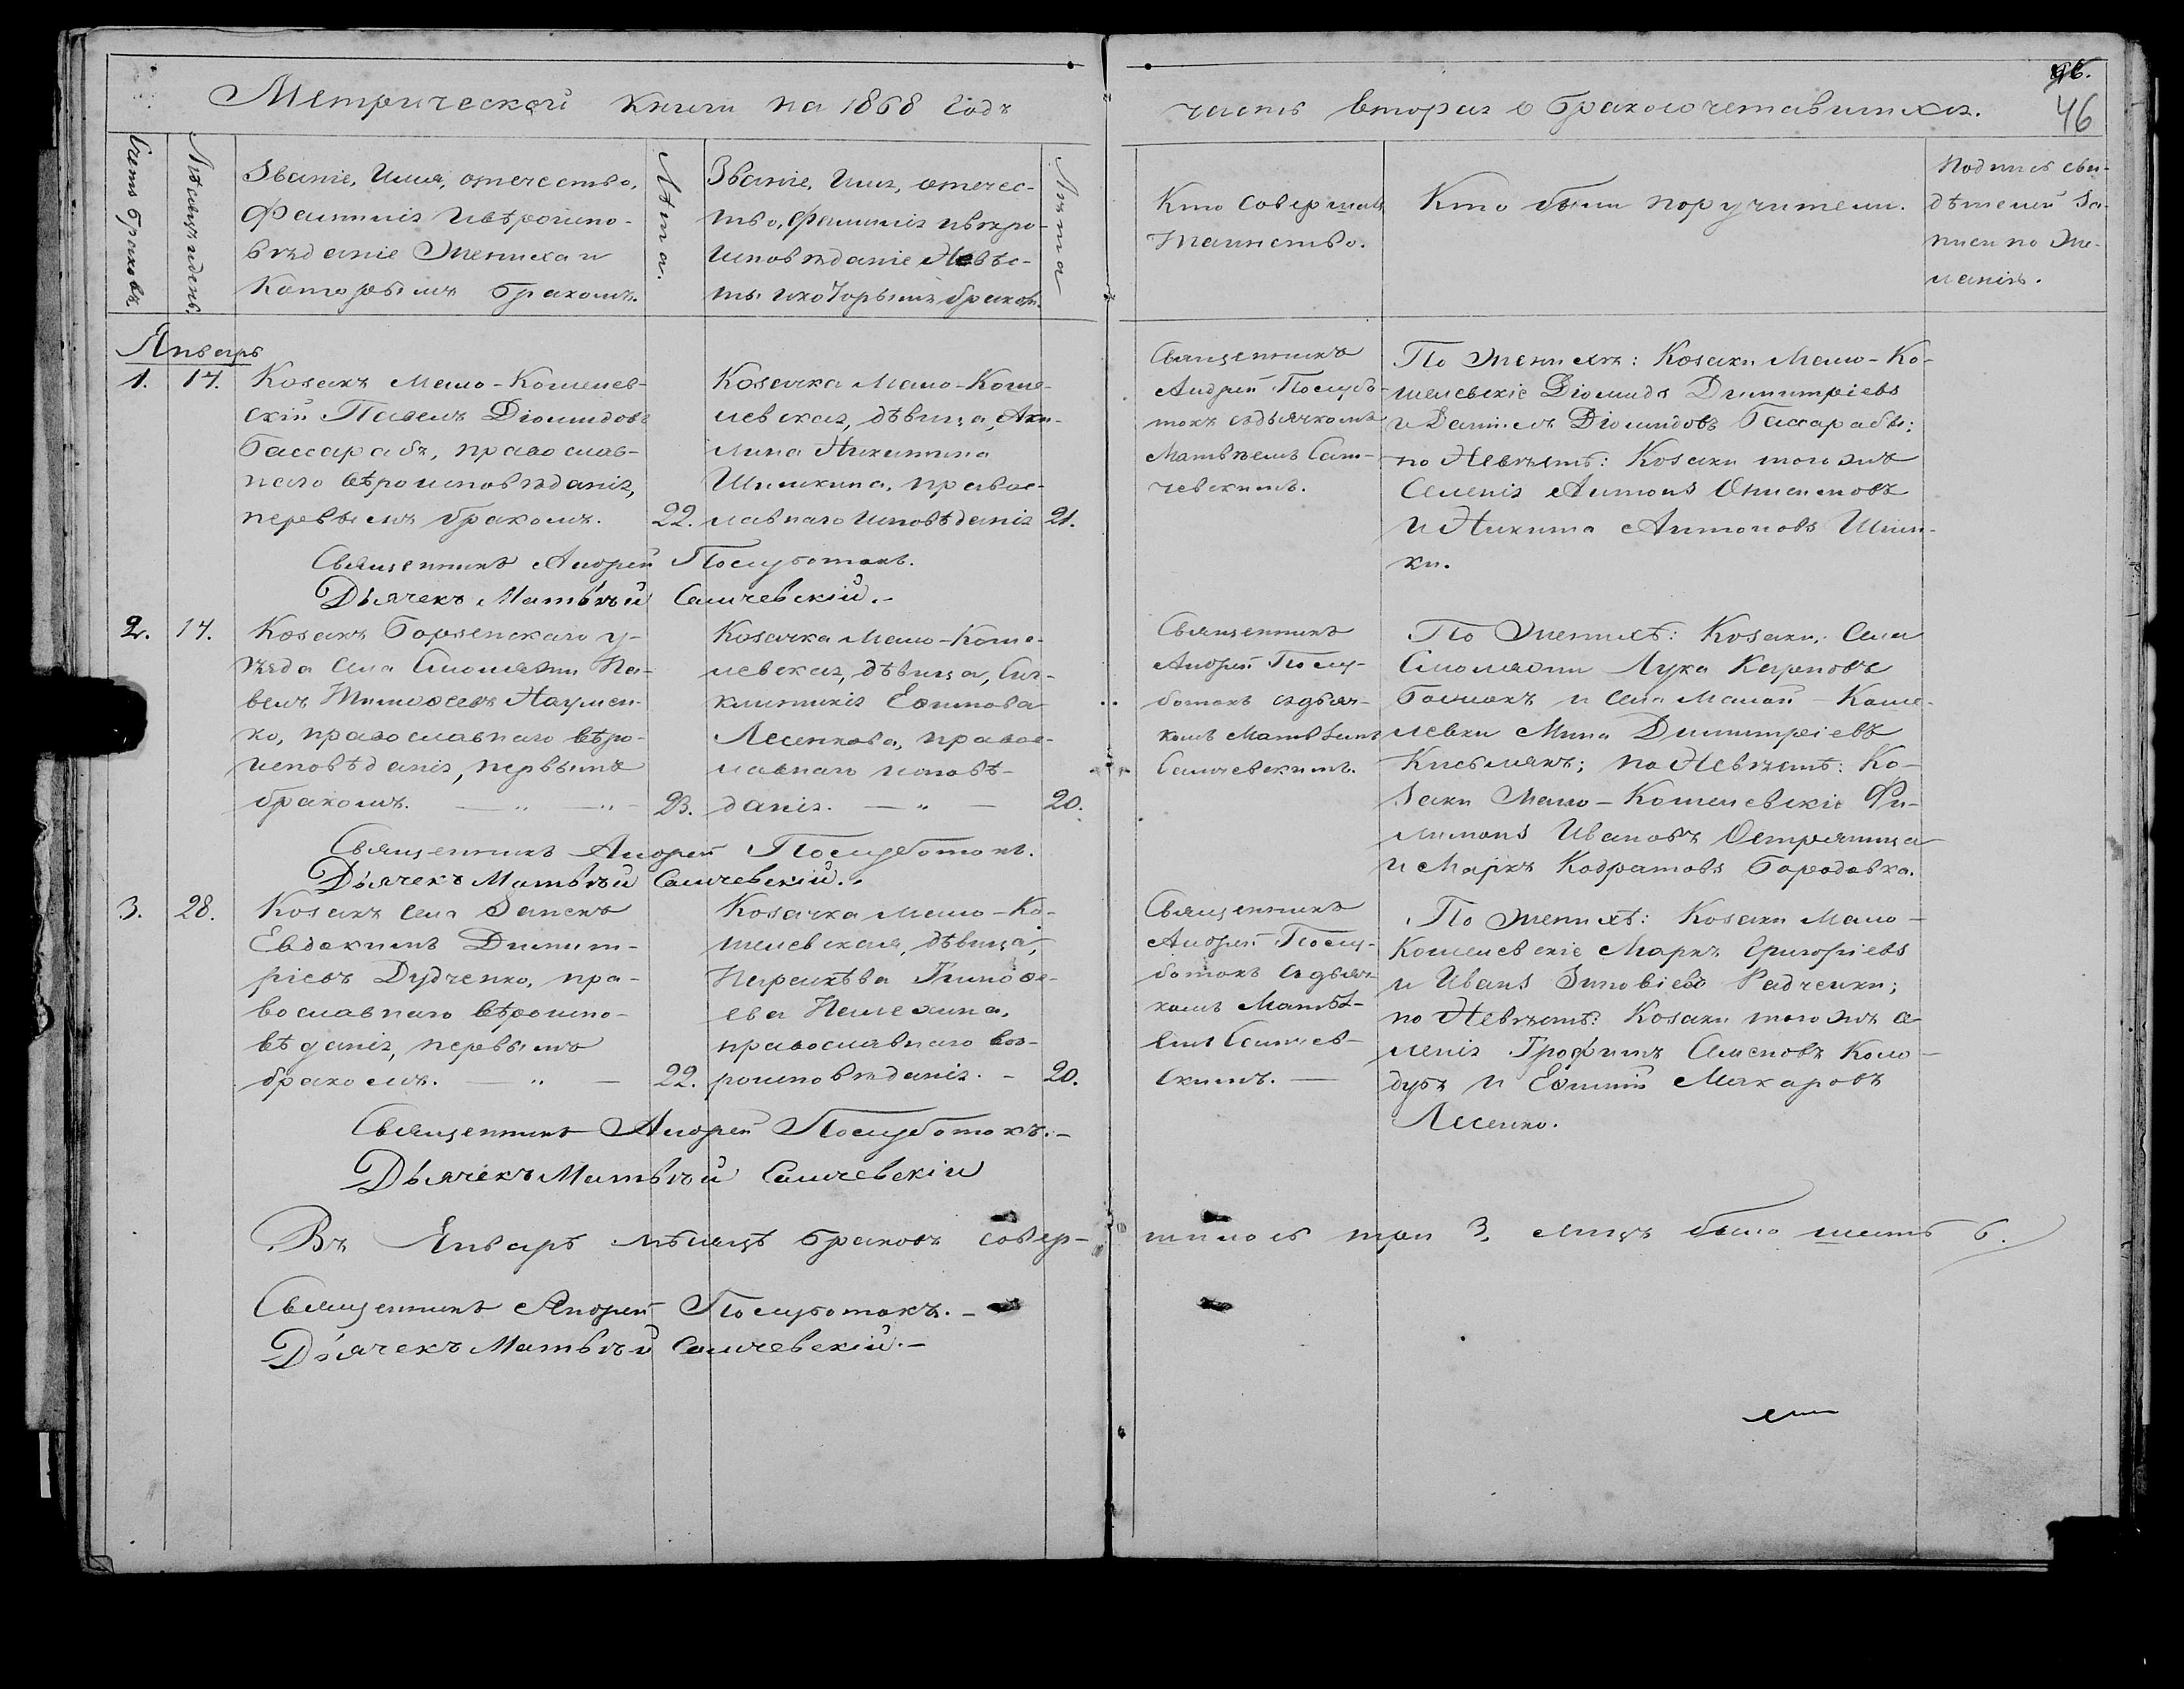 Метрической книги на 1868 годъ
часть вторая о бракосочетавшихся.
46
Счетъ браковъ.
Мѣсяцъ и день.
Званіе, Имя, отечество,
фамилія и вѣроиспо-
вѣданіе Жениха и
которымъ бракомъ.
Лѣта.
Званіе, Имя, отечес-
тво, фамилія и вѣро-
исповѣданіе Невѣс-
ты и которымъ бракомъ.
Лѣта
Кто совершалъ
таинство.
Кто были поручители.
Подпись сви-
дѣтелей за-
писи по же-
ланію.
Январь
1. 14.
Козакъ Мало-Кошелев-
скій Павелъ Діомидовъ
Бассарабъ, православ-
наго вѣроисповѣданія,
первымъ бракомъ. 22.
Козачка Мало-Коше-
левская, дѣвица, Аки-
лина Никитина
Шишкина, правос-
лавнаго исповѣданія 21.
Священникъ
Андрей Полубо-
токъ съ дьячкомъ
Матвѣемъ Сам-
чевскимъ.
По женихѣ: Козаки Мало-Ко-
шелевскіе Діомидъ Димитріевъ
и Даніилъ Діомидовъ Бассарабы;
по Невѣстѣ: Козаки того же
селенія Антонъ Онисимовъ
и Никита Антоновъ Шиш-
ки.
Священникъ Андрей Полуботокъ.
Дьячекъ Матвѣй Самчевскій.-
2. 14.
Козакъ Борзенскаго у-
ѣзда села Смоляжи Па-
велъ Тимоѳеевъ Наумен-
ко, православнаго вѣро-
исповѣданія, первымъ
бракомъ. — „ — „ - 23.
Козачка Мало-Коше-
левская, дѣвица, Син-
клитикія Еѳимова
Лесенкова, правос-
лавнаго исповѣ-
данія. — „ — 20.
Священникъ
Андрей Полу-
ботокъ съ дьяч-
комъ Матвѣемъ
Самчевскимъ.
По Женихѣ: Козаки, села
Смоляжи Лука Карповъ
и села Малой-Коше-
левки Мина Димитріевъ
по Невѣстѣ: Ко-
заки Мало-Кошелевскіе Фи-
лимонъ Ивановъ Остряница
и Маркъ Кодратовъ Бородавка.
Священникъ Андрей Полуботокъ.
Дьячекъ Матвѣй Самчевскій..
3. 28.
Козакъ села Занекъ
Евдокимъ Димит-
ріевъ Дудченко, пра-
вославнаго вѣроиспо-
вѣданія, первымъ
бракомъ. — „ — 22.
Козачка Мало-Ко-
шелевская, дѣвица,
Параскѣва Тимоѳе-
ева
православнаго вѣ-
роисповѣданія. - 20.
Священникъ
Андрей Полу-
ботокъ съ дьяч-
комъ Матвѣ-
емъ Самчев-
скимъ. —
По женихѣ: Козаки Мало-
Кошелевскіе Маркъ Григоріевъ
и Иванъ Зиновіевъ Радченки;
по Невѣстѣ: Козаки того же се-
ленія Трофимъ Семеновъ Коло-
дубъ и Еѳимій Макаровъ
Лесенко.
Священникъ Андрей Полуботокъ.-
Дьячекъ Матвѣй Самчевскій
Въ Январѣ мѣсяцѣ браковъ совер-
шилось три 3, лицъ было шесть 6.
Священникъ Андрей Полуботокъ.-
Дьячекъ Матвѣй Самчевскій.-